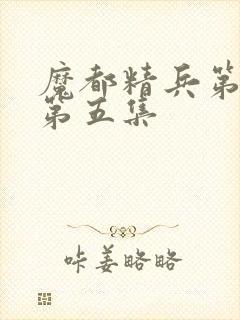 魔都精兵第
第五集
咔姜略略